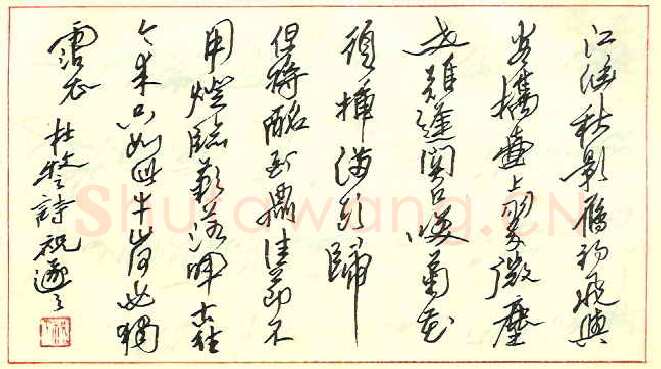 江涵秋影雁初飛與
客攜壺上翠微塵
世難逢開口咲菊花
須插滿頭歸
但將酩酊酬佳節不
用登臨歎落暉古往
今來只如此牛山何必獨
霑衣 杜牧之詩 祝遂之
Shufawang.CN